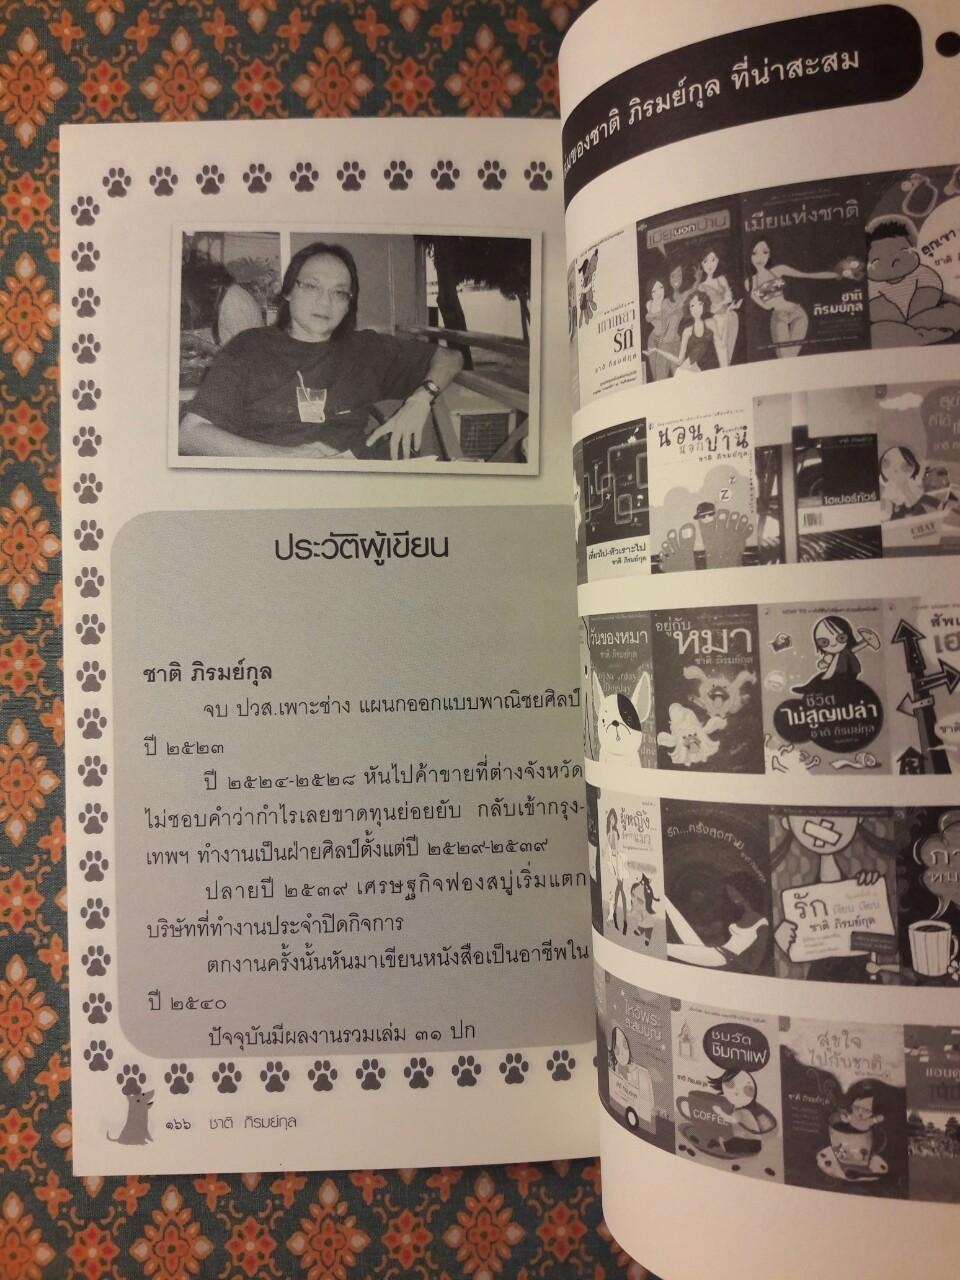 ประวัติผู้เขียน
ชาติ ภิรมย์กุล
จบ ปวส.เพาะช่าง แผนกออกแบบพาณิชยศิลป์
ปี ๒๕๒๓
ปี ๒๕๒๔-๒๕๒๘ หันไปค้าขายที่ต่างจังหวัด
ไม่ชอบคำว่ากำไรเลยขาดทุนย่อยยับ กลับเข้ากรุง-
เทพฯ ทำงานเป็นฝ่ายศิลป์ตั้งแต่ปี ๒๕๒๙-๒๕๓๙
ปลายปี ๒๕๓๙ เศรษฐกิจฟองสบู่เริ่มแตก
บริษัทที่ทำงานประจำปิดกิจการ
ตกงานครั้งนั้นหันมาเขียนหนังสือเป็นอาชีพใน
ปี ๒๕๔๐
ปัจจุบันมีผลงานรวมเล่ม ๓๑ ปก
๑๖๖ ชาติ ภิรมย์กุล
ของชาติ ภิรมย์กุล ที่น่าสะสม
รัก
ชาติ ภิรมย์กุล
เมียนอกบ้าน
เมียแห่งชาติ
ชาติ
ภิรมย์กุล
นอน
นอกบ้าน
ชาติ ภิรมย์กุล
z
z
ไฮเปอร์ทัวร์
เที่ยวไป-หัวเราะไป
ชาติ ภิรมย์กุล
CHAT
วันของหมา
ชาติ ภิรมย์กุล
อยู่กับ
หมา
ชาติ ภิรมย์กุล
ชีวิต
ไม่สูญเปล่า
ชาติ ภิรมย์กุล
ผู้หญิง
แมว
รัก...ครั้งสุดท้าย
รัก
ชาติ ภิรมย์กุล
ไหว้พระ
ชมวัด
ชิมกาแฟ
ชาติ ภิรมย์กุล
COFFEE
สุขใจ
ไปกับชาติ